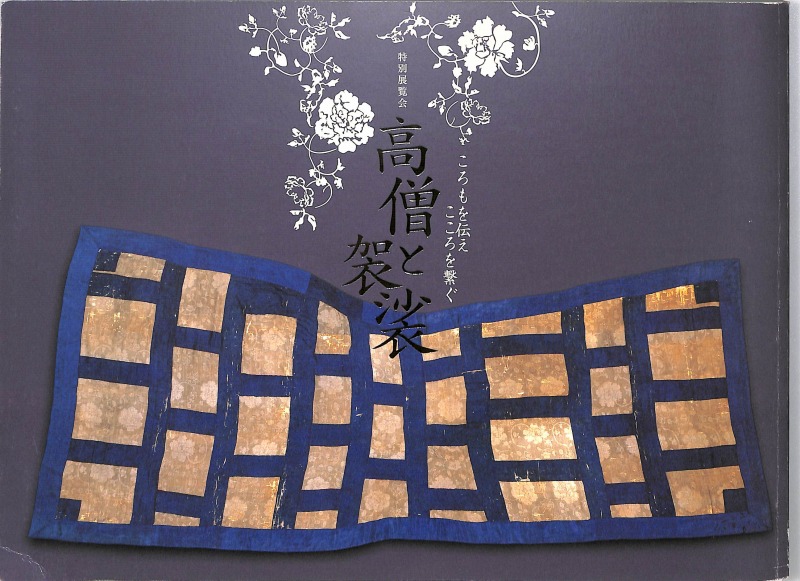 特別展覧会
高僧と袈裟
ころもを伝え
こころを繋ぐ